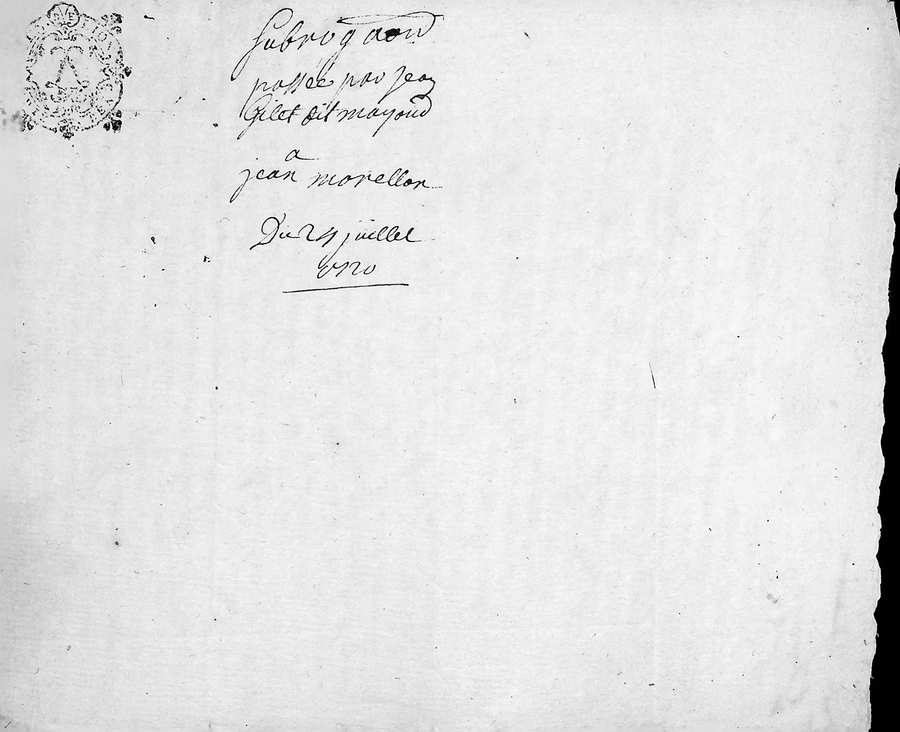 Subrogaon
passée par jean
Gilet dit mayoud
a
jean morellon
Du 24 juillet
1720